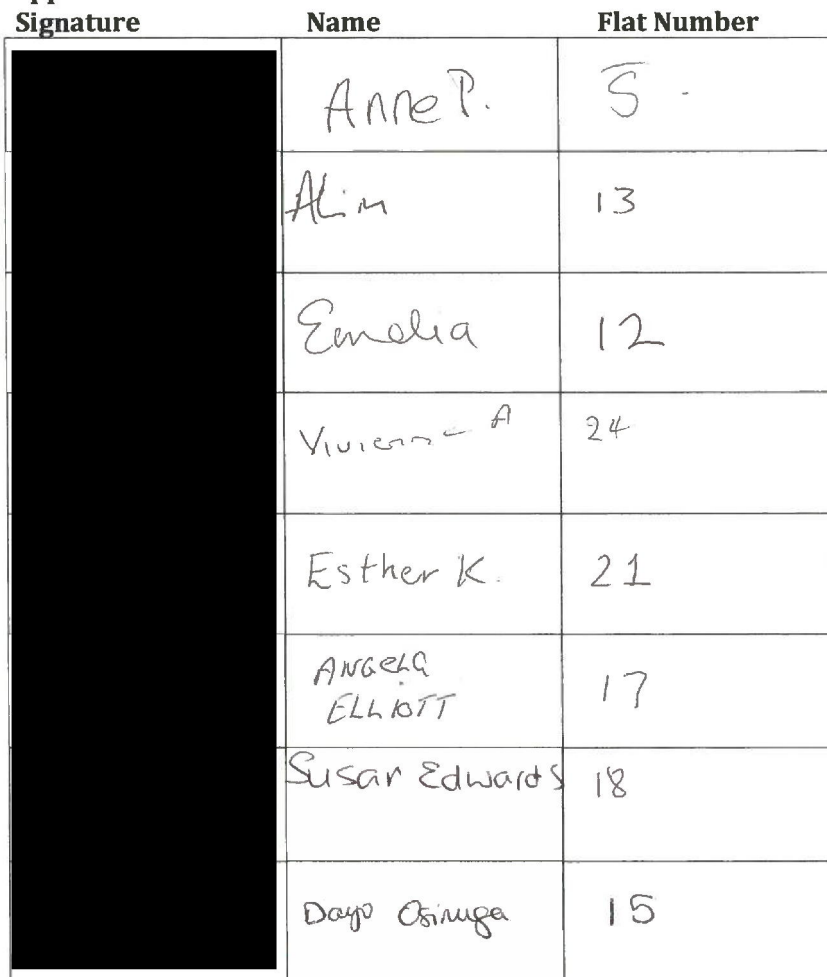 Signature Name Flat Number
Anne P. 5
Alim 13
Emelia 12
A 24
Esther K. 21
ANGELA
ELLIOTT 17
Susan Edwards 18
Dayo Osinuga 15